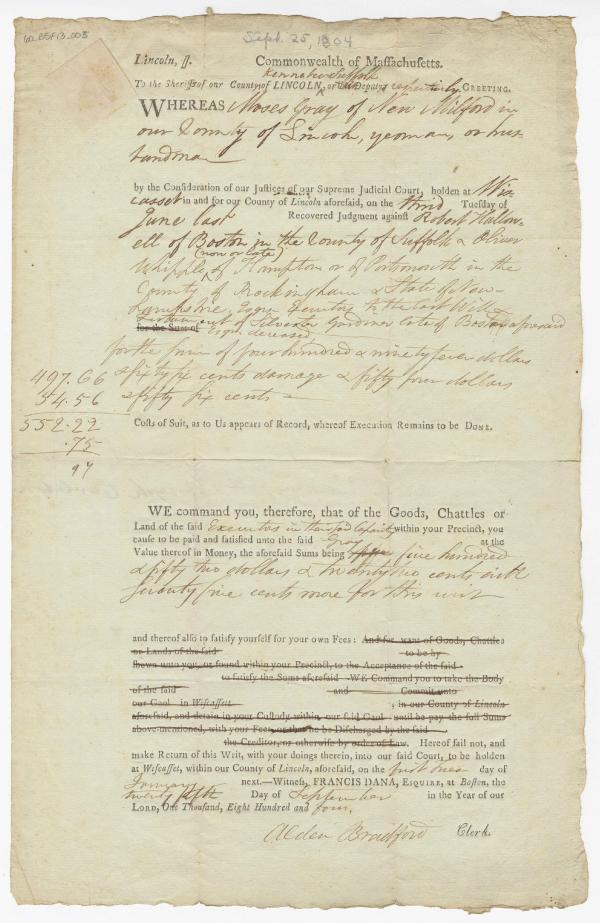 Sept. 25, 1804
Lincoln, ss. Commonwealth of Massachusetts.
Kennebec Suffolk
To the Sheriffs of our County of LINCOLN, or Deputys respectively GREETING.
WHEREAS Moses Gray of New Milford in
our County of Lincoln, yeoman, or hus-
bandman
by the Consideration of our Justices of our Supreme Judicial Court, holden at Wis-
casset in and for our County of Lincoln aforesaid, on the third Tuesday of
June last Recovered Judgment against Robert Hallow-
ell of Boston in the County of Suffolk & Oliver
(now or late)
Whipple of Hampton or of Portsmouth in the
County of Rockingham & State of New-
Hampshire, Esqrs Executors to the last Will &
for the Sum of Testament of Silvester Gardiner late of Boston aforesaid
Esqr. deceased
for the sum of four hundred & ninety seven dollars
497.66 & sixty six cents damage & fifty four dollars
54.56 & fifty six cents
552.22 Costs of Suit, as to Us appears of Record, whereof Execution Remains to be DONE.
.75
97
WE command you, therefore, that of the Goods, Chattles or
Land of the said Executors in their said Capacity within your Precinct, you
cause to be paid and satisfied unto the said Gray at the
Value thereof in Money, the aforesaid Sums being five hundred
& fifty two dollars & twenty two cents with
seventy five cents more for this writ
and thereof also to satisfy yourself for your own Fees: And for want of Goods, Chattles
or Lands of the said to be by
shewn unto you, or found within your Precinct, to the Acceptance of the said
to satisfy the Sums aforesaid WE Command you to take the Body
of the said and Commit unto
our Gaol in Wiscassett , in our County of Lincoln
aforesaid, and detain in your Custody within our said Gaol until he pay the full Sums
above-mentioned, with your Fees, or that he be Discharged by the said
the Creditor, or otherwise by order of Law. Hereof fail not, and
make Return of this Writ, with your doings therein, into our said Court, to be holden
at Wiscasset, within our County of Lincoln, aforesaid, on the day of
January next.—Witness, FRANCIS DANA, ESQUIRE, at Boston, the
twenty fifth Day of September in the Year of our
LORD, One Thousand, Eight Hundred and four.
Alden Bradford Clerk.